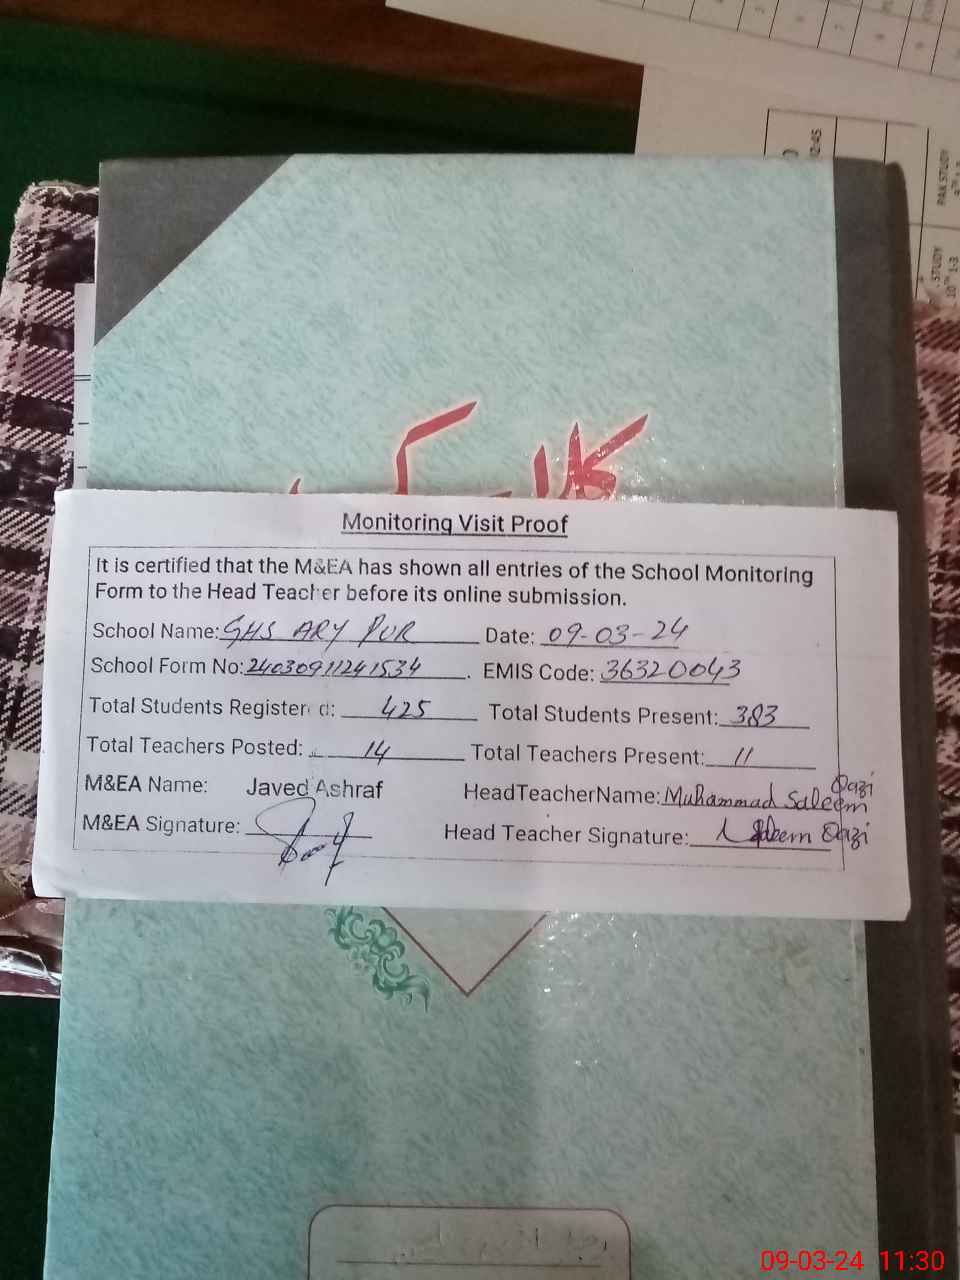 02:45
PAK STUDY
STUDY
10TH 1-3
Monitoring Visit Proof
It is certified that the M&EA has shown all entries of the School Monitoring
Form to the Head Teacher before its online submission.
School Name: GHS ARY PUR Date: 09-03-24
School Form No: 24030911241534. EMIS Code: 36320043
Total Students Registered: 425 Total Students Present: 383
Total Teachers Posted: 14 Total Teachers Present: 11
M&EA Name: Javed Ashraf HeadTeacherName: Muhammad Saleem Qazi
M&EA Signature: Head Teacher Signature: Saleem Qazi
09-03-24 11:30